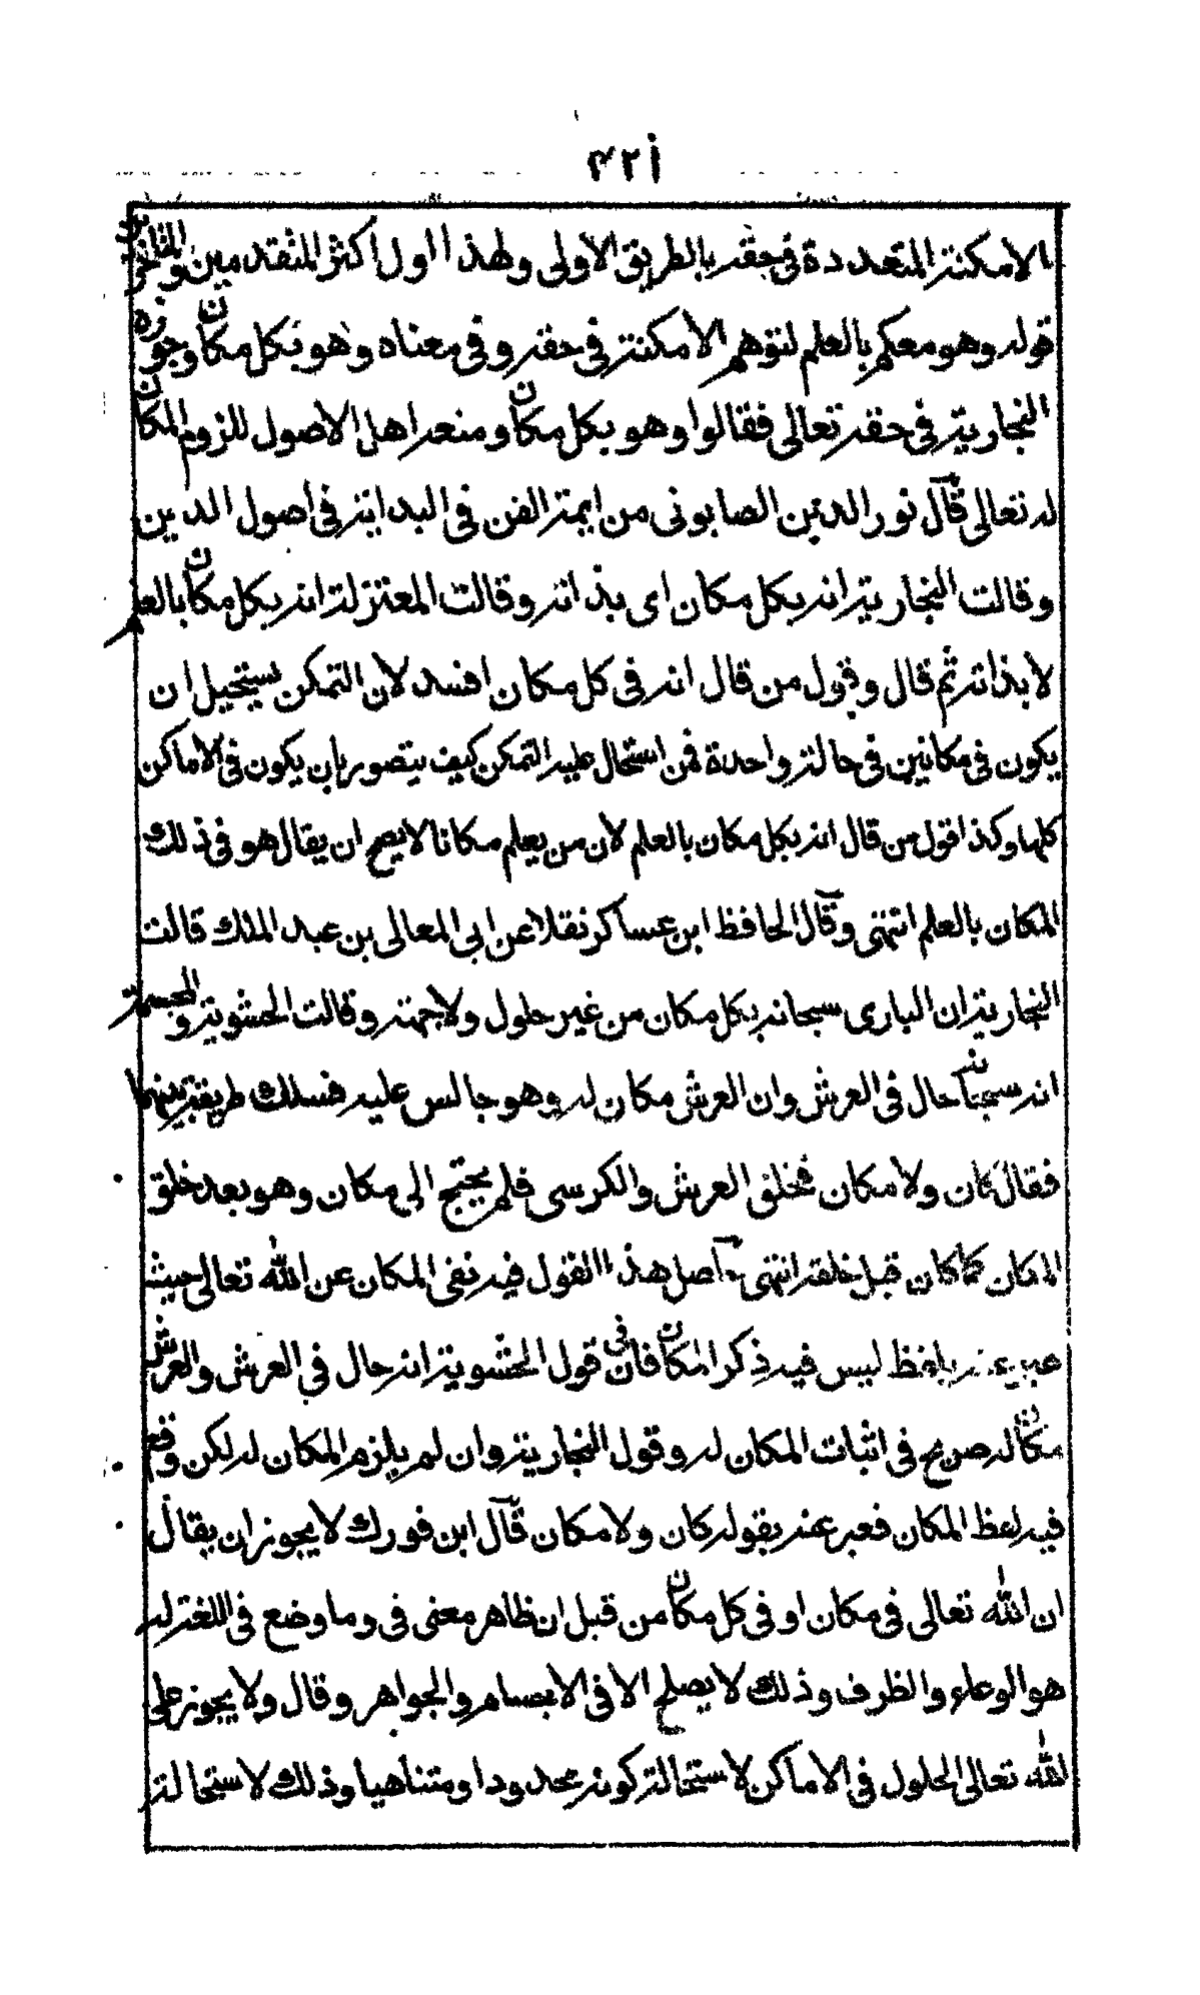 ٤٢١
الامكنة المتعددة في حقه بالطريق الاولى ولهذا اول اكثر المتقدمين والمتأخرين
قوله وهو معكم بالعلم لتوهم الامكنة في حقه وفي معناه وهو بكل مكان وجوزه
النجارية في حقه تعالى فقالوا وهو بكل مكان ومنعه اهل الاصول للزوم المكان
له تعالى قال نور الدين الصابوني من ايمة الفن في البداية في اصول الدين
وقالت النجارية انه بكل مكان اى بذاته وقالت المعتزلة انه بكل مكان بالعلم
لا بذاته ثم قال وقول من قال انه في كل مكان افسد لان التمكن يستحيل ان
يكون في مكانين في حالة واحدة فمن استحال عليه التمكن كيف يتصور بان يكون في الاماكن
كلها وكذا قول من قال انه بكل مكان بالعلم لان من يعلم مكانا لا يصح ان يقال هو في ذلك
المكان بالعلم انتهى وقال الحافظ ابن عساكر نقلا عن ابى المعالى بن عبد الملك قالت
النجارية ان البارى سبحانه بكل مكان من غير حلول ولا جهة وقالت الحشوية والمجسمة
انه سبحانه حال في العرش وان العرش مكان له وهو جالس عليه فسلك طريقة بينهما
فقال كان ولا مكان فخلق العرش والكرسى فلم يحتج الى مكان وهو بعد خلق
المكان كما كان قبل خلقه انتهى اصل هذا القول فيه نفى المكان عن الله تعالى حيث
عبر عنه بلفظ ليس فيه ذكر المكان فان في قول الحشوية انه حال في العرش والعرش
مكان له صريح في اثبات المكان له وقول النجارية وان لم يلزم المكان له لكن وقع
فيه لفظ المكان فعبر عنه بقوله كان ولا مكان قال ابن فورك لا يجوز ان يقال
ان الله تعالى في مكان او في كل مكان من قبل ان ظاهر معنى في وما وضع في اللغة له
هو الوعاء والظرف وذلك لا يصلح الا في الاجسام والجواهر وقال ولا يجوز على
الله تعالى الحلول في الاماكن لاستحالة كونه محدودا ومتناهيا وذلك لاستحالة